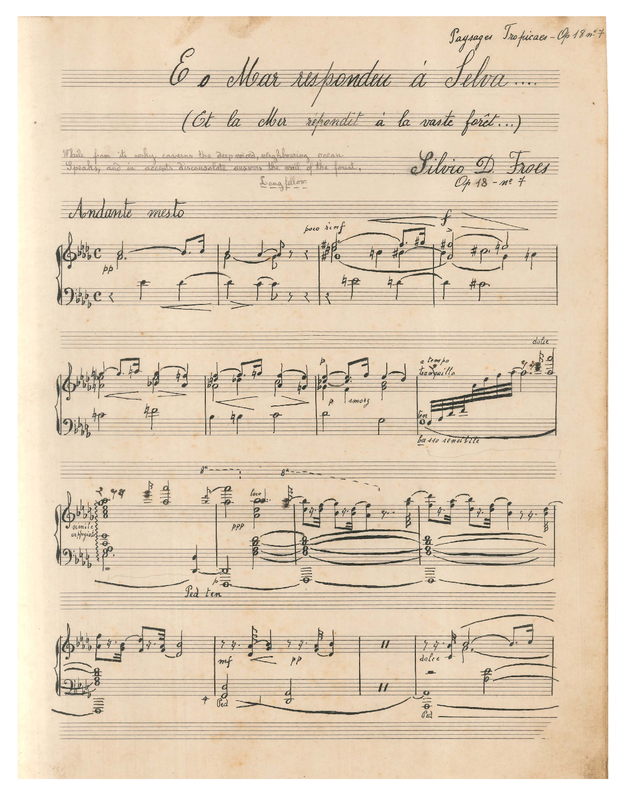 Paysages Tropicaes - Op 18 nº 7
E o Mar respondeu á Selva....
(Et la Mer repondit à la vaste forêt...)
While from its rocky caverns the deep voiced, neighbouring ocean
Speaks, and in accents disconsolate answers the wail of the forest.
Longfellow
Silvio D. Froes
Op 18 - nº 7
Andante mesto
poco rinf
f
pp
dolce
p
a tempo
tranquillo
p smorz
ten
basso sensibile
8ª
8ª
loco
simile
arpejos
ppp
p
Ped ten
mf
pp
dolce
Ped
Ped